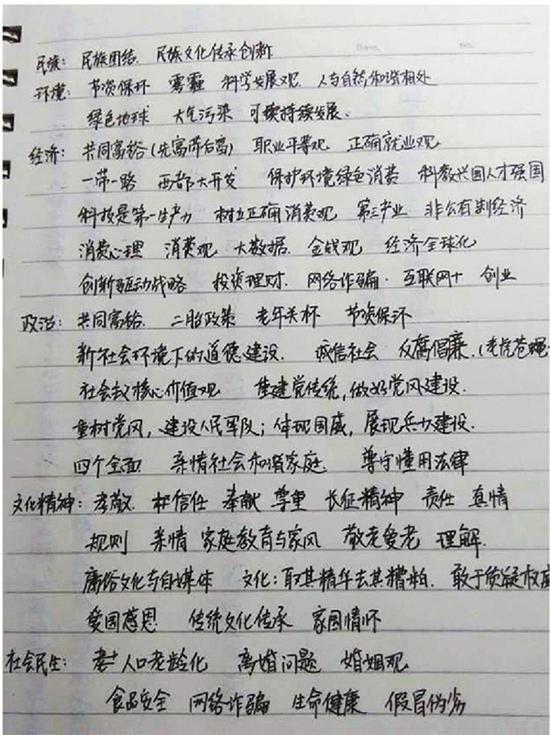 民族：民族团结、民族文化传承创新
环境：节资保环 雾霾 科学发展观 人与自然和谐相处
绿色地球 大气污染 可续持续发展、
经济：共同富裕(先富带后富) 职业平等观 正确就业观
一带一路 西部大开发 保护环境绿色消费 科教兴国人才强国
科技是第一生产力 树立正确消费观 第三产业 非公有制经济
消费心理 消费观 大数据 金钱观 经济全球化
创新驱动战略 投资理财 网络诈骗 互联网+ 创业
政治：共同富裕 二胎政策 老年关怀 节资保环
新社会环境下的道德建设、 诚信社会 反腐倡廉(老虎苍蝇
社会主义核心价值观 重建党传统，做好党风建设
重树党风，建设人民军队；体现国威，展现兵力建设
四个全面 亲情社会和谐家庭 尊守懂用法律
文化精神：孝敬 信任 奉献 尊重 长征精神 责任 真情
规则 亲情 家庭教育与家风 敬老爱老 理解
庸俗文化与自媒体 文化：取其精华去其糟粕 敢于质疑权威
爱国感恩 传统文化传承 家国情怀
社会民生： 人口老龄化 离婚问题 婚姻观
食品安全 网络诈骗 生命健康 假冒伪劣